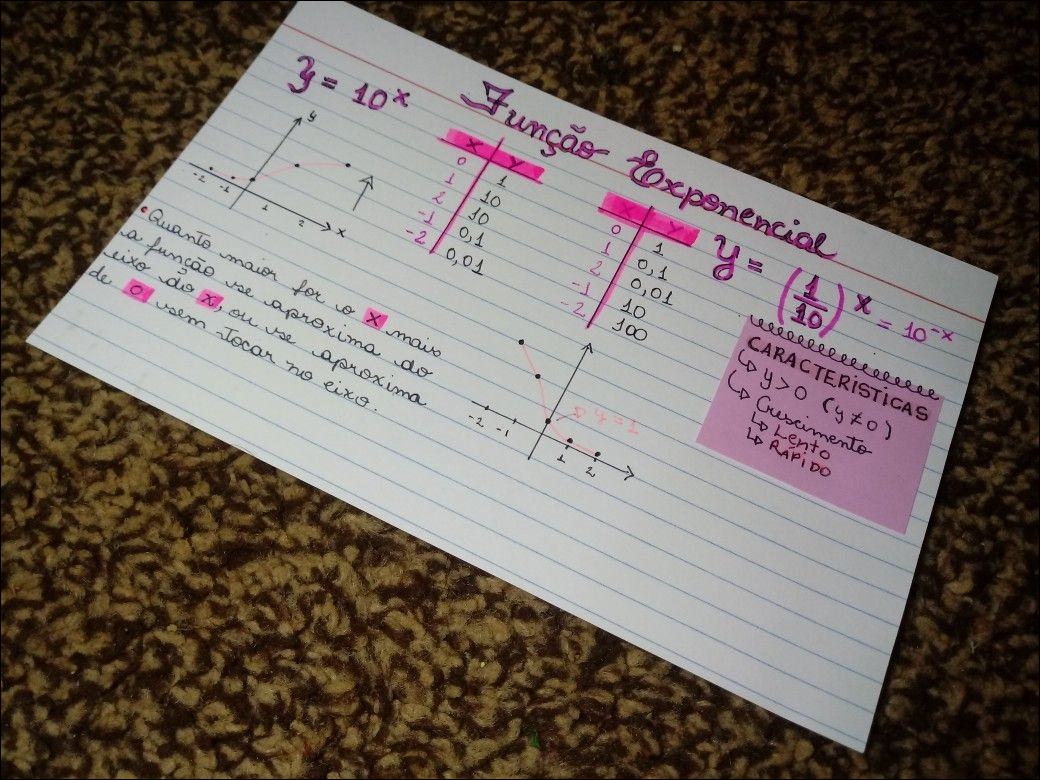 Função Exponencial
y = 10^x
y
-2 -1 1 2 x
X Y
0 1
1 10
2 10
-1 0,1
-2 0,01
• Quanto maior for o x mais
a função se aproxima do
eixo do x, ou se aproxima
de 0 sem tocar no eixo.
X Y
0 1
1 0,1
2 0,01
-1 10
-2 100
y = (1/10)^x = 10^-x
y = 1
-2 -1 1 2
CARACTERÍSTICAS
↳ y > 0 (y ≠ 0)
↳ Crescimento
↳ Lento
↳ RÁPIDO